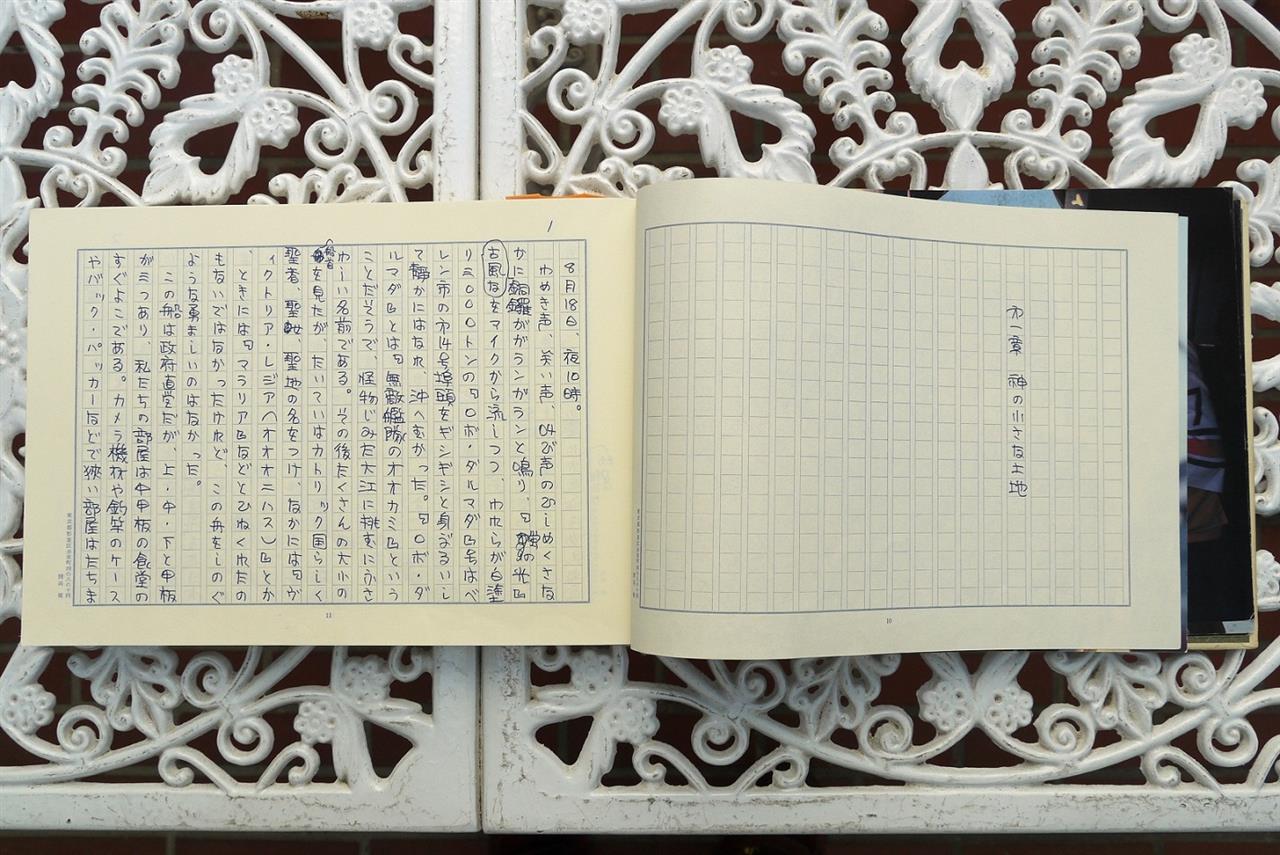 第一章　神の小さな土地
10
1
8月18日、夜10時。
わめき声、笑い声、叫び声のひしめくさな
かに銅鑼ががランガランと鳴り、『蛍の光』
古風なをマイクから流しつつ、われらが白塗
リ三〇〇〇トンの『ロボ・ダルマダ』号はベ
レン市の第14号埠頭をギシギシと身ぶるいし
て静かにはなれ、沖へむかった。『ロボ・ダ
ルマダ』とは『無敵艦隊のオオカミ』という
ことだそうで、怪物じみた大江に挑むにふさ
わしい名前である。その後たくさんの大小の
船首
を見たが、たいていはカトリック国らしく
聖者、聖女、聖地の名をつけ、なかには『ヴ
ィクトリア・レジア(オオオニハス)』とか
、ときには『マラリア』などとひねくれたの
もないではなかったけれど、この舟をしのぐ
ような勇ましいのはなかった。
この船は政府直営だが、上・中・下と甲板
が三つあり、私たちの部屋は中甲板の食堂の
すぐよこである。カメラ機材や釣竿のケース
やバック・パッカーなどで狭い部屋はたちま
開高 健
11